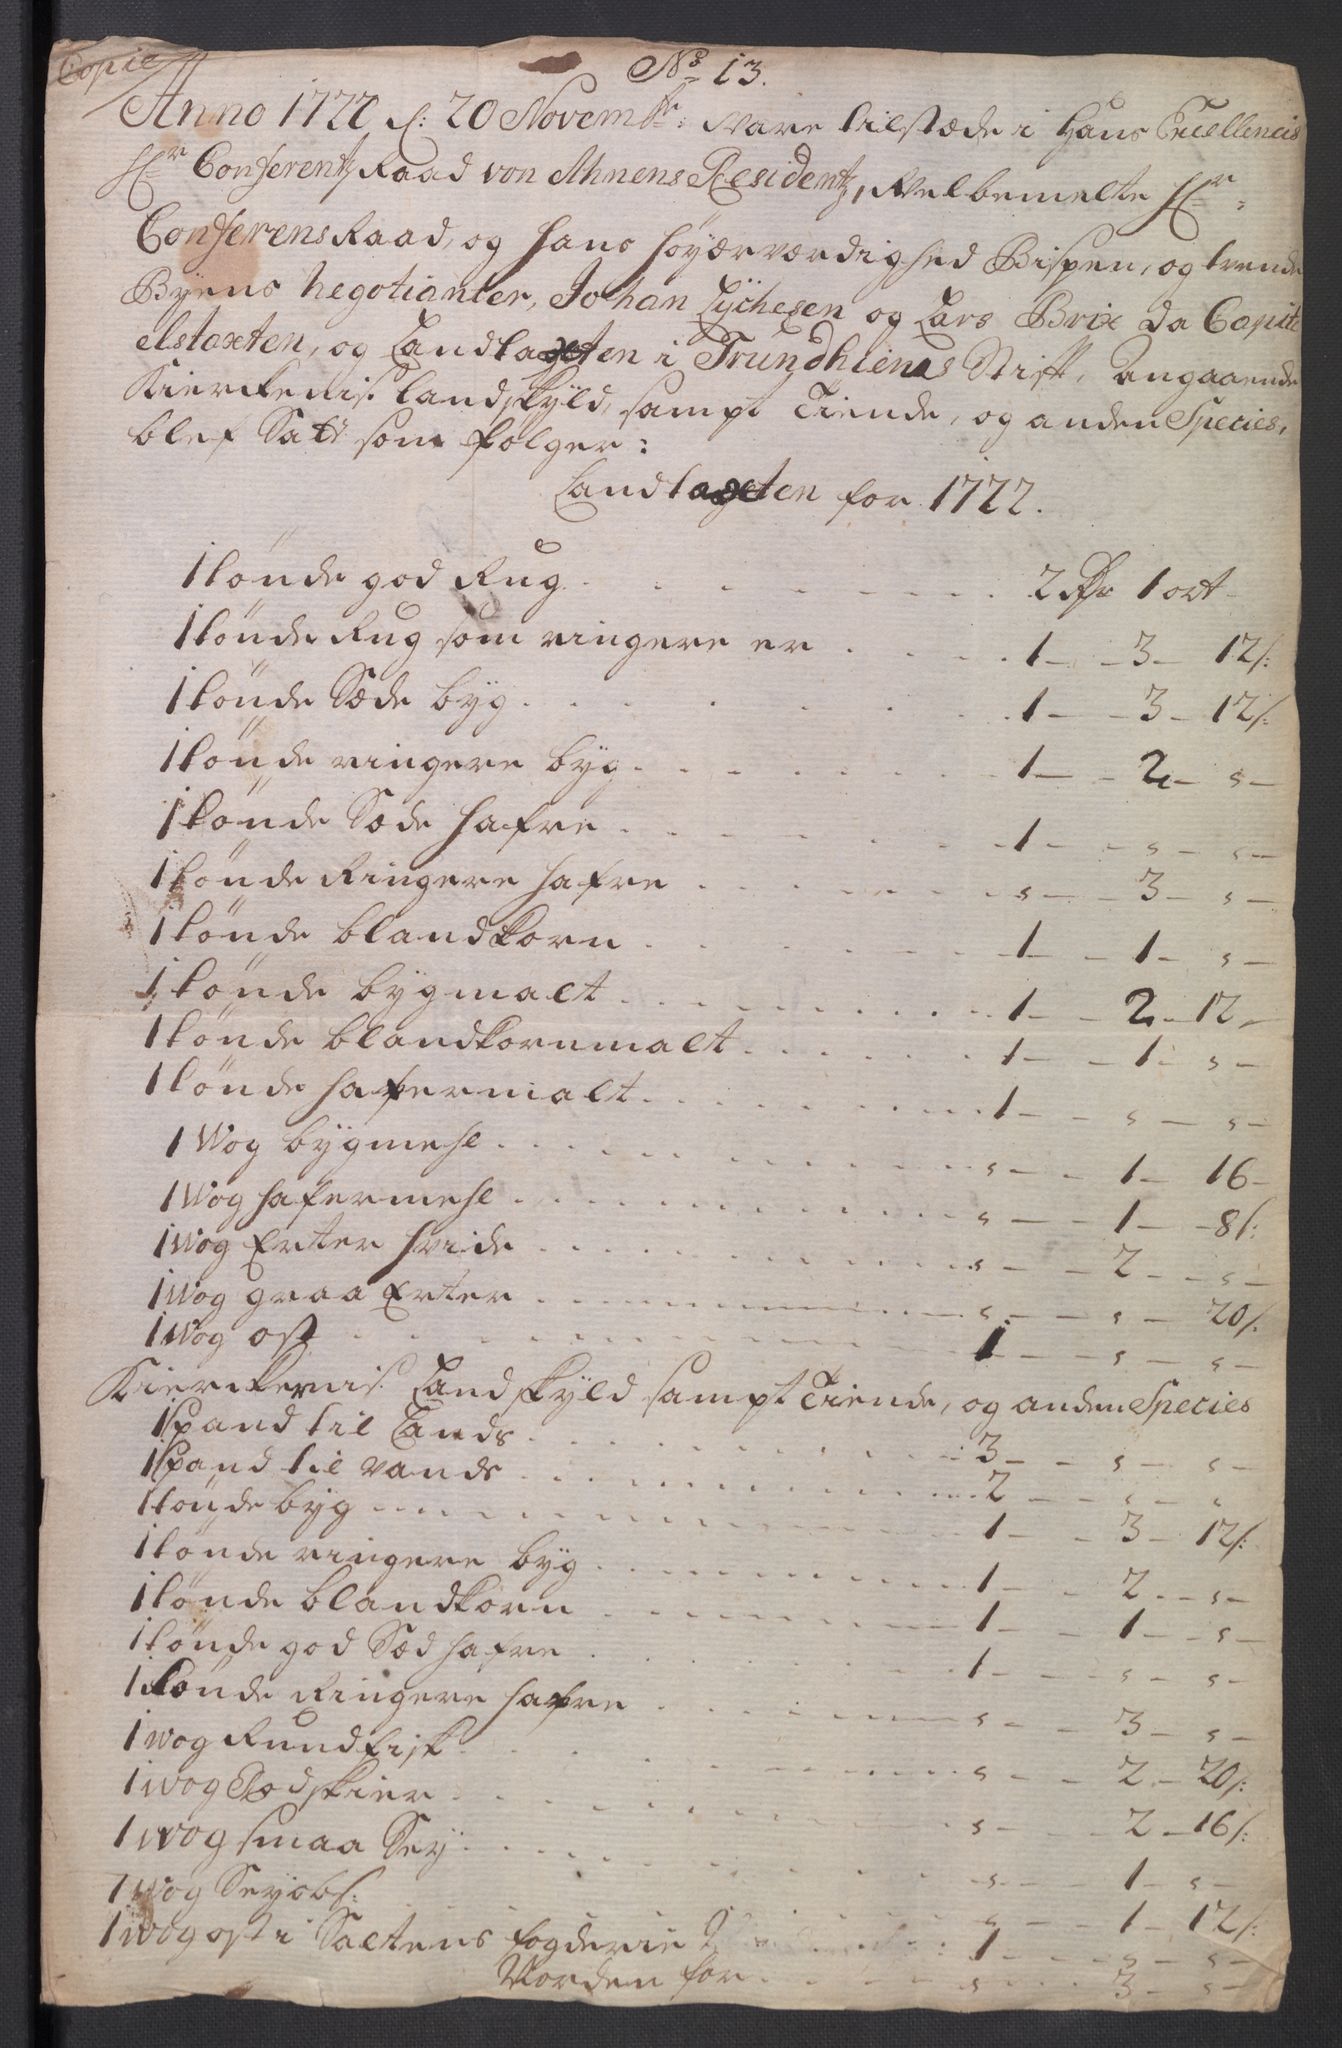 Copie
No 13.
Anno 1722 d: 20 Novembr: Vare tilstæde i Hans Excellencis
Hr Conferentz Raad von Ahnens Residentz, Velbemelte Hr:
Conferens Raad, og Hans Höyærværdighed Bispen, og tvende
Byens Negotianter, Johan Lÿchesen og Lars Brix da Capit
elstaxten, og Landtaxten i Trundhiems Stift, angaaende
Kierckenis: landskÿld, sampt Tiende, og anden Species,
blef Satt som fölger:
Landtaxten for 1722.
1 tönde god Rug . . . 2 Rdr 1 ort
1 tönde Rug som ringere er . . . 1 — 3 — 12 s:
1 tönde Sæde byg . . . 1 — 3 — 12 s:
1 tönde ringere byg . . . 1 — 2 — s —
1 tönde Sæde Hafre . . . 1 — s — s —
1 tönde Ringere Hafre . . . s — 3 — s —
1 tönde blandkorn . . . 1 — 1 — s —
1 tönde bygmalt . . . 1 — 2 — 12 —
1 tönde blandkornmalt . . . 1 — 1 — s —
1 tönde Hafermalt . . . 1 — s — s —
1 Wog bygmehl . . . s — 1 — 16 —
1 Wog Hafermehl . . . s — 1 — 8 s:
1 Wog Erter Hvide . . . s — 2 — s —
1 Wog graa Erter . . . s — s — 20 s:
1 Wog ost . . . 1 — s — s —
Kierckernis: Landskÿld sampt Tiende, og anden Species
1 Spand til Lands . . . 3 — s — s —
1 Spand til vands . . . 2 — s — s
1 tönde byg . . . 1 — 3 — 12 s:
1 tönde ringere byg . . . 1 — 2 — s —
1 tönde blandkorn . . . 1 — 1 — s —
1 tönde god Sæd Hafre . . . 1 — s — s —
1 tönde Ringere Hafre . . . s — 3 — s —
1 wog Rundfisk . . . s — 2 — 20 s:
1 wog Rodskier . . . s — 2 — 16 s:
1 wog smaa Sey . . . s — 1 — s —
1 wog Seyobs: . . . s — 1 — 12 s:
1 wog ost i Saltens fogderie . . . 1 — s — s —
Norden for . . . s — 3 — s —